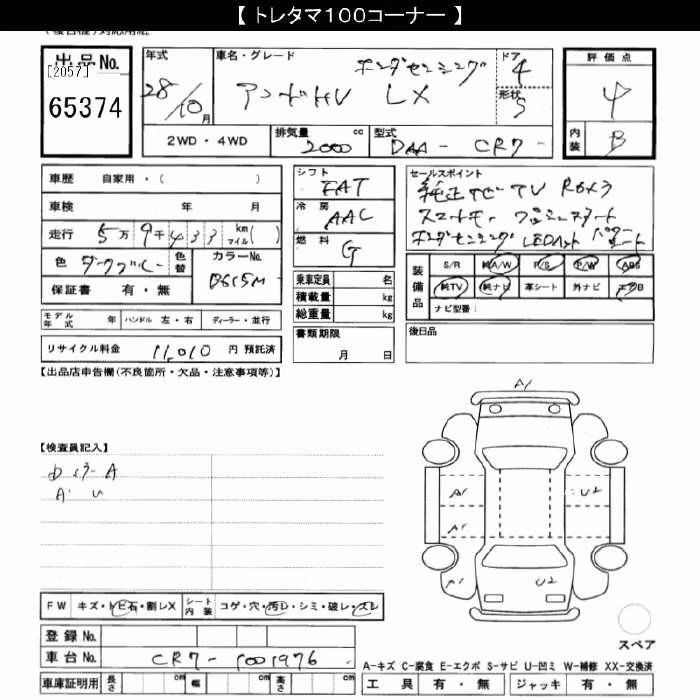 【 トレタマ100コーナー 】
出品No. [2057] 65374
年式 28/10 月
車名・グレード ホンダセンシング
アコードHV LX
ドア 4
形状 S
評価点 4
内装 B
2WD・4WD
排気量 2000 cc
型式 DAA - CR7 -
車歴 自家用・( )
車検 年 月
走行 5万9千433 km マイル( )
色 ダークブルー
色替
カラーNo. B615M
保証書 有・無
モデル年式 年
ハンドル 左・右
ディーラー・並行
リサイクル料金 11,010 円 預託済
シフト FAT
冷房 AAC
燃料 G
乗車定員 名
積載量 kg
総重量 kg
書類期限
月 日
セールスポイント
純正ナビ TV Rカメラ
スマートキー プッシュスタート
ホンダセンシング LEDライト
装備品 S/R 純A/W P/S P/W ABS
純TV 純ナビ 革シート 外ナビ エアB
ナビ型番:
後日品
【出品店申告欄(不良箇所・欠品・注意事項等)】
【検査員記入】
A1
A1
U2
A1
A1
U2
FW キズ・トビ石・割レX
シート内装 コゲ・穴・汚レ・シミ・破レ・スレ
登録No.
車台No. CR7-1001976
車庫証明用 長さ cm 幅 cm 高さ cm
スペア
A-キズ C-腐食 E-エクボ S-サビ U-凹ミ W-補修 XX-交換済
工具 有・無 ジャッキ 有・無